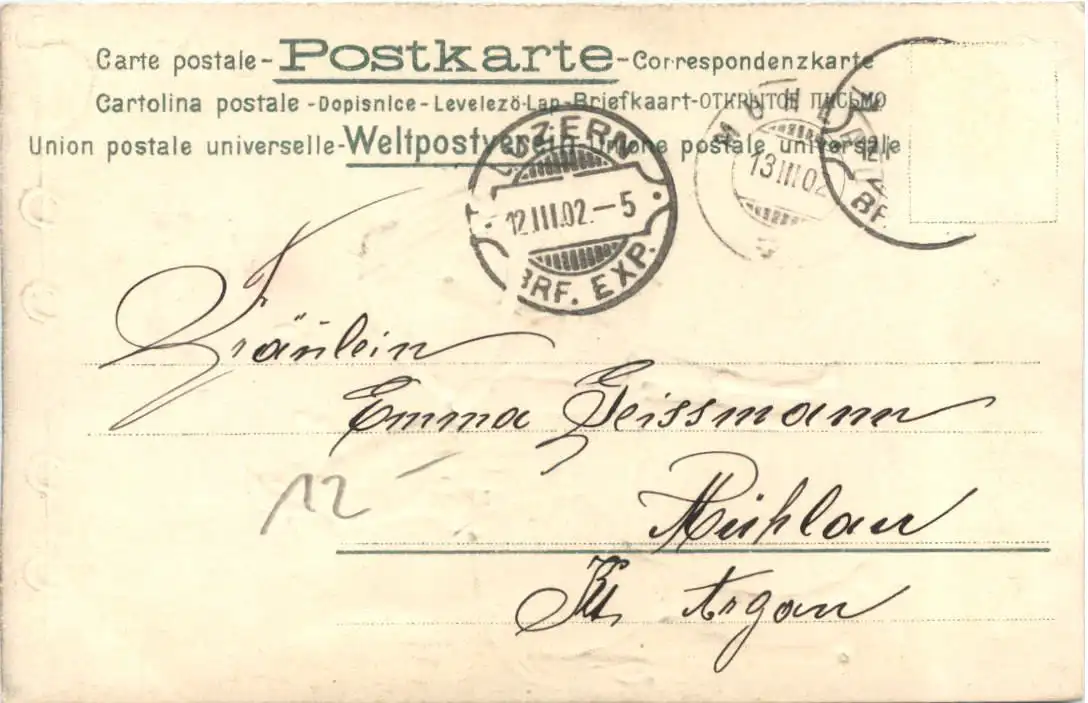 Carte postale - Postkarte - Correspondenzkarte
Cartolina postale - Dopisnice - Levelezö-Lap - Briefkaart - ОТКРЫТОЕ ПИСЬМО
Union postale universelle - Weltpostverein - Unione postale universale
LUZERN
12.III.02.-5
BRF. EXP.
MÜHLAU
13 III 02
Fräulein
Emma Geissmann
Mühlau
Kt. Argau
12